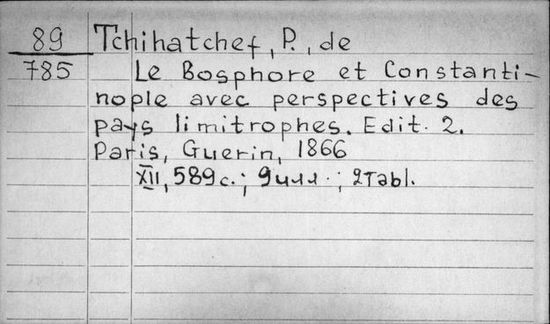 89 Tchihatchef, P., de
785 Le Bosphore et Constanti-
nople avec perspectives des
pays limitrophes. Edit. 2.
Paris, Guerin, 1866
XII, 589 с.; 9 илл.; 2 Tabl.